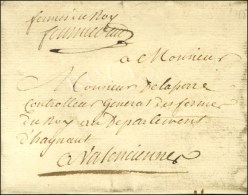 fermes du Roy
a Monsieur
Monsieur Delaporte
Controlleur General des fermes
du Roy au Departement
d'haynaut
a Valenciennes